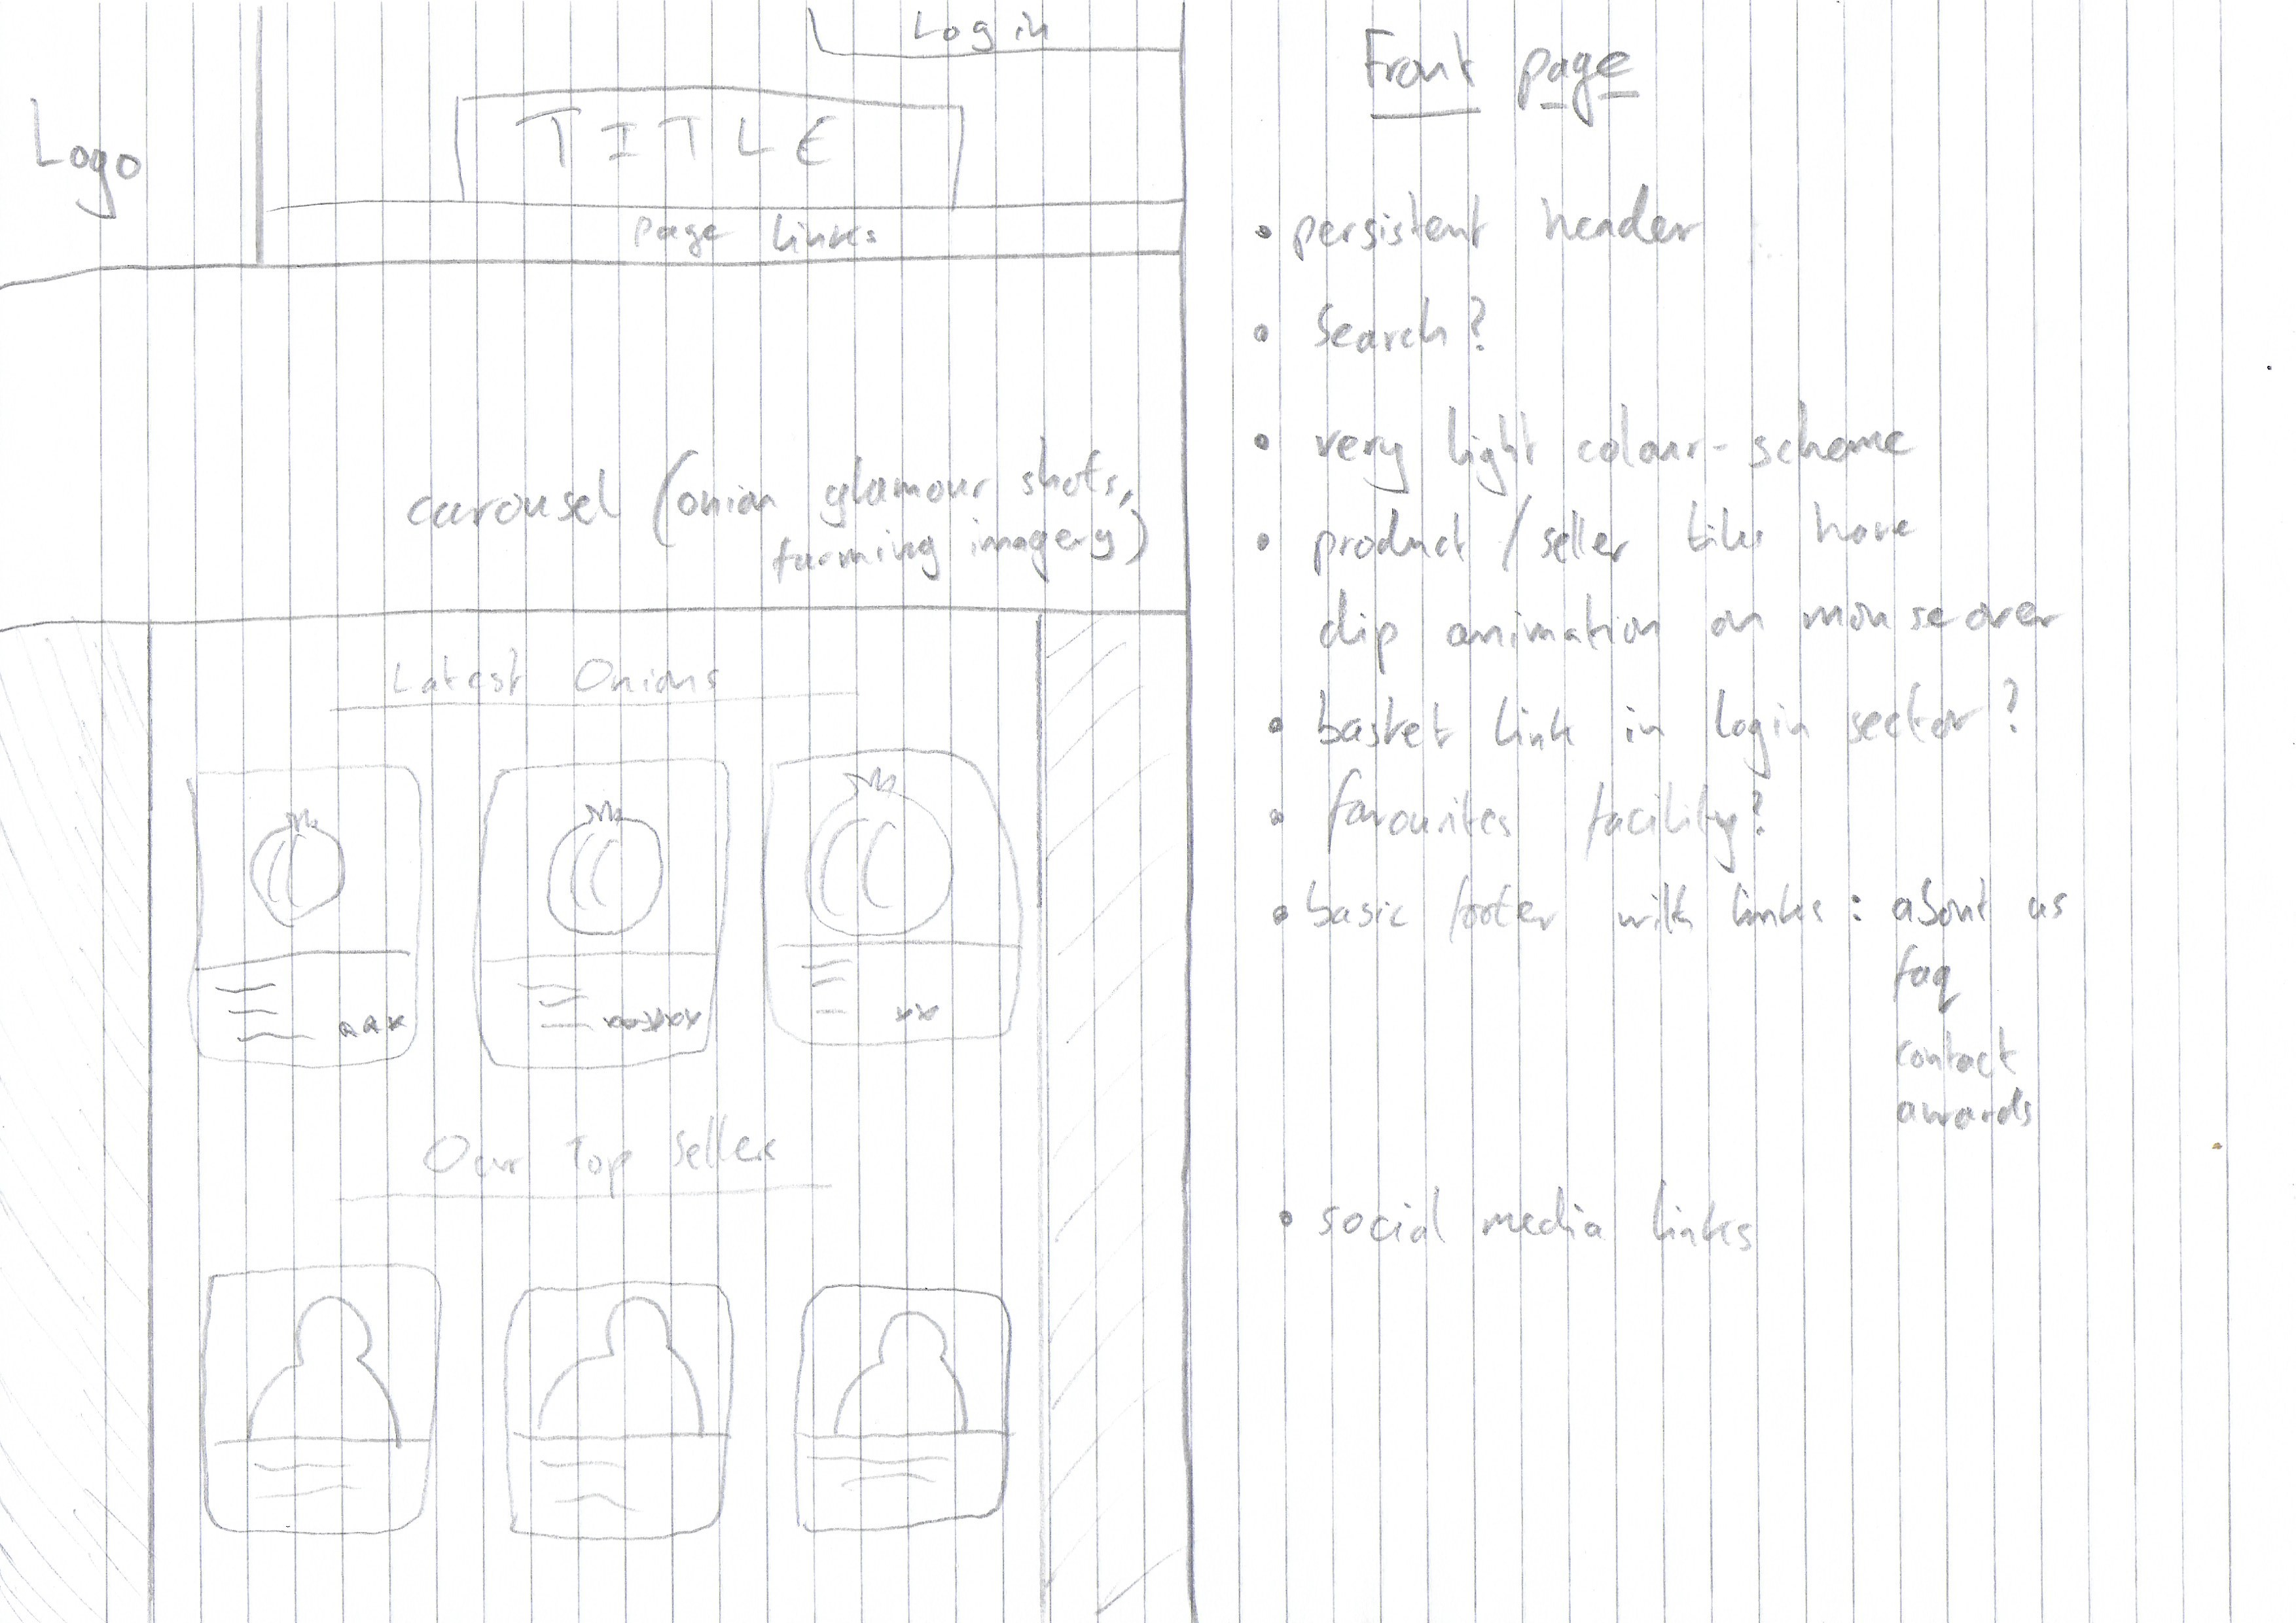 Log in
Logo
TITLE
Page links
carousel (onion glamour shots,
farming imagery)
Latest Onions
Our Top Sellers
Front page
• persistent header
• search?
• very light colour-scheme
• product / seller tiles have
animation on mouseover
• basket link in login sector?
• favourites facility?
• basic footer with links: about us
faq
contact
awards
• social media links